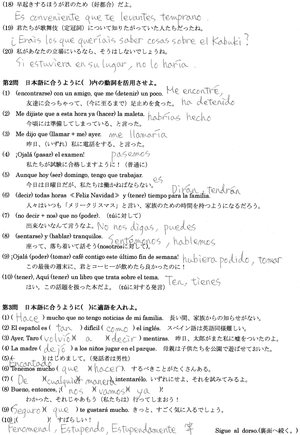 (18) 早起きするほうが君のため（好都合）だよ。
Es conveniente que te levantes temprano.
(19) 君たちが歌舞伎（定冠詞）について知りたがっていた人たちだったね。
¿Erais los que queríais saber cosas sobre el Kabuki?
(20) 私があなたの立場にいるなら、そうはしないでしょうね。
Si estuviera en su lugar, no lo haría.
第2問 日本語に合うように( )内の動詞を活用させよ。
(1) (encontrarse) con un amigo, que me (detener) un poco. Me encontré,
友達に会っちゃって、（今に至るまで）足止めを食った。 ha detenido
(2) Me dijiste que a esta hora ya (hacer) la maleta. habrías hecho
今頃には準備してしまっている、と言った。
(3) Me dijo que (llamar + me) ayer. me llamaría
昨日、（いずれ）私に電話をする、と言った。
(4) ¡Ojalá (pasar) el examen! pasemos
私たちが試験に合格しますように！（普通に）
(5) Aunque hoy (ser) domingo, tengo que trabajar. es
今日は日曜日だが、私たちは働かねばならない。
(6) (decir) todas horas < Feliz Navidad > y (tener) tiempo para la familia. Dirán, tendrán
人々はいつも「メリークリスマス」と言い、家族のための時間を持つようになるだろう。
(7) (no decir + nos) que no (poder). （túに対して）
出来ないなんて言うなよ。 No nos digas, puedes
(8) (sentarse) y (hablar) tranquilos. Sentémonos, hablemos
座って、落ち着いて話そう（nosotrosに対して）。
(9) ¡Ojalá (poder) (tomar) café contigo este último fin de semana! hubiera podido, tomar
この最後の週末に、君とコーヒーが飲めたら良かったのに！
(10) (tener), Aquí (tener) un libro que trata sobre el tema. Ten, tienes
はい、この話題を扱った本だよ。（túに対する発言）
第3問 日本語に合うように( )に適語を入れよ。
(1) ( Hace ) mucho que no tengo noticias de mi familia. 長い間、家族からの知らせがない。
(2) El español es ( tan ) difícil ( como ) el inglés. スペイン語は英語同様難しい。
(3) Ayer, Taro ( volvió ) a ( decir ) mentiras. 昨日、太郎がまた私に嘘をついたのよ。
(4) La madre ( dejó ) a los niños jugar en el parque. 母親は子供たちを公園で遊ばせておいた。
(5) ( Encantado ) はじめまして。（発話者は男性）
(6) Tenemos mucho ( que ) ( hacer ) するべきことがたくさんある。
(7) ( De ) ( cualquier ) ( manera ) intentarélo. いずれにせよ、それを試みてみるよ。
(8) Bueno, entonces, ( nos ) ( vamos ) ( ya )
わかった、それじゃあもう（私たちは）行ってしまおう！
(9) ( Seguro ) ( que ) te gustará mucho. きっと、すごく気に入るでしょう。
(10) ¡( )! すばらしい！
Fenomenal, Estupendo, Estupendamente 等
Sigue al dorso.（裏面へ続く。）